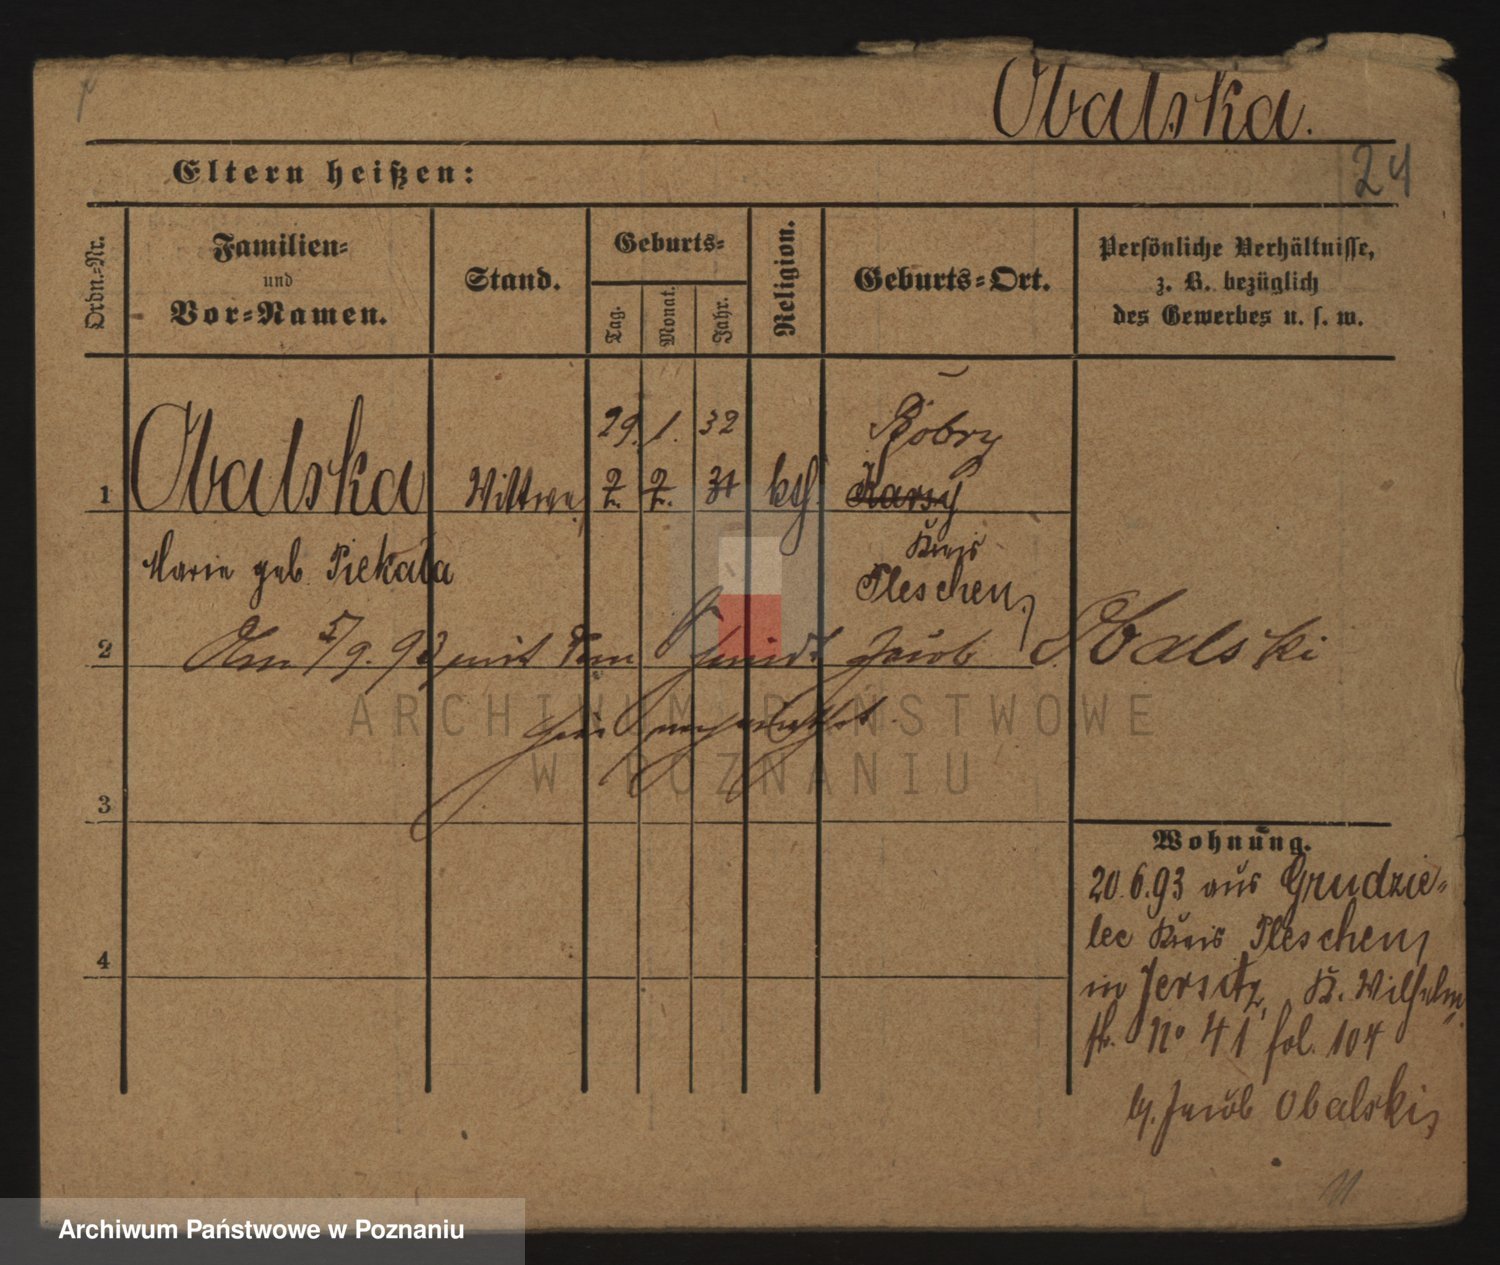 Obalska.
24
Eltern heißen:
Ordn.-Nr.
Familien-
und
Vor-Namen.
Stand.
Geburts-
Tag.
Monat.
Jahr.
Religion.
Geburts-Ort.
Persönliche Verhältnisse,
z. B. bezüglich
des Gewerbes u. s. w.
29. 1. 32
Bobry
1 Obalska Wittwe 2. 2. 31 kth. Karsy
Kreis
Marie geb. Piekala Pleschen,
2 Am 5/9. 93 mit dem Jacob Obalski
hier verheirathet.
3
4
Wohnung.
20.6.93 aus Grudzie-
lec Kreis Pleschen,
in Jersitz, K. Wilhelm
str. No 41 fol. 104
b/. Jacob Obalski,
11
ARCHIWUM PAŃSTWOWE
W POZNANIU
Archiwum Państwowe w Poznaniu